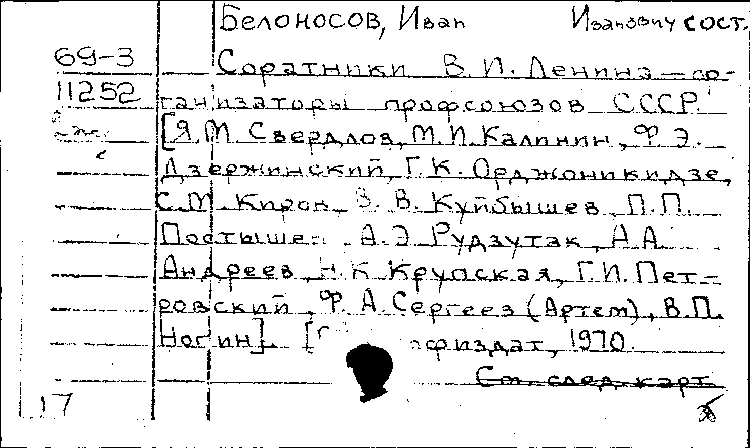 Белоносов, Иван Иванович сост.
69-3 Соратники В.И. Ленина — ор-
11252 ганизаторы профсоюзов СССР.
[Я.М. Свердлов, М.И. Калинин, Ф.Э.
Дзержинский, Г.К. Орджоникидзе,
С.М. Киров, В.В. Куйбышев, П.П.
Постышев А.Э. Рудзутак, А.А.
Андреев, Н.К. Крупская, Г.И. Пет-
ровский, Ф.А. Сергеев (Артем), В.П.
Ногин]. физдат, 1970.
См. след. карт.
17